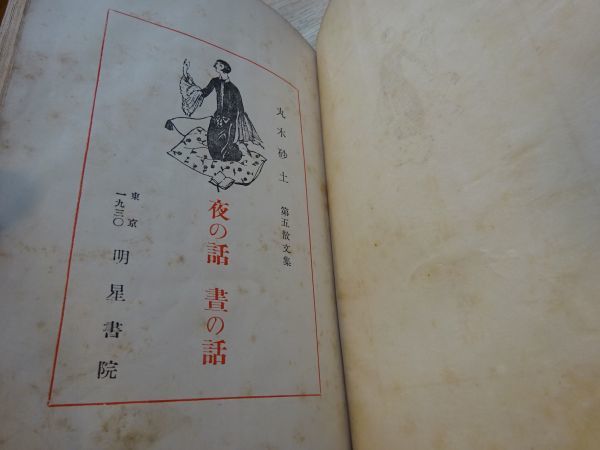 丸木砂土
第五散文集
夜の話 晝の話
東京
一九三〇
明星書院